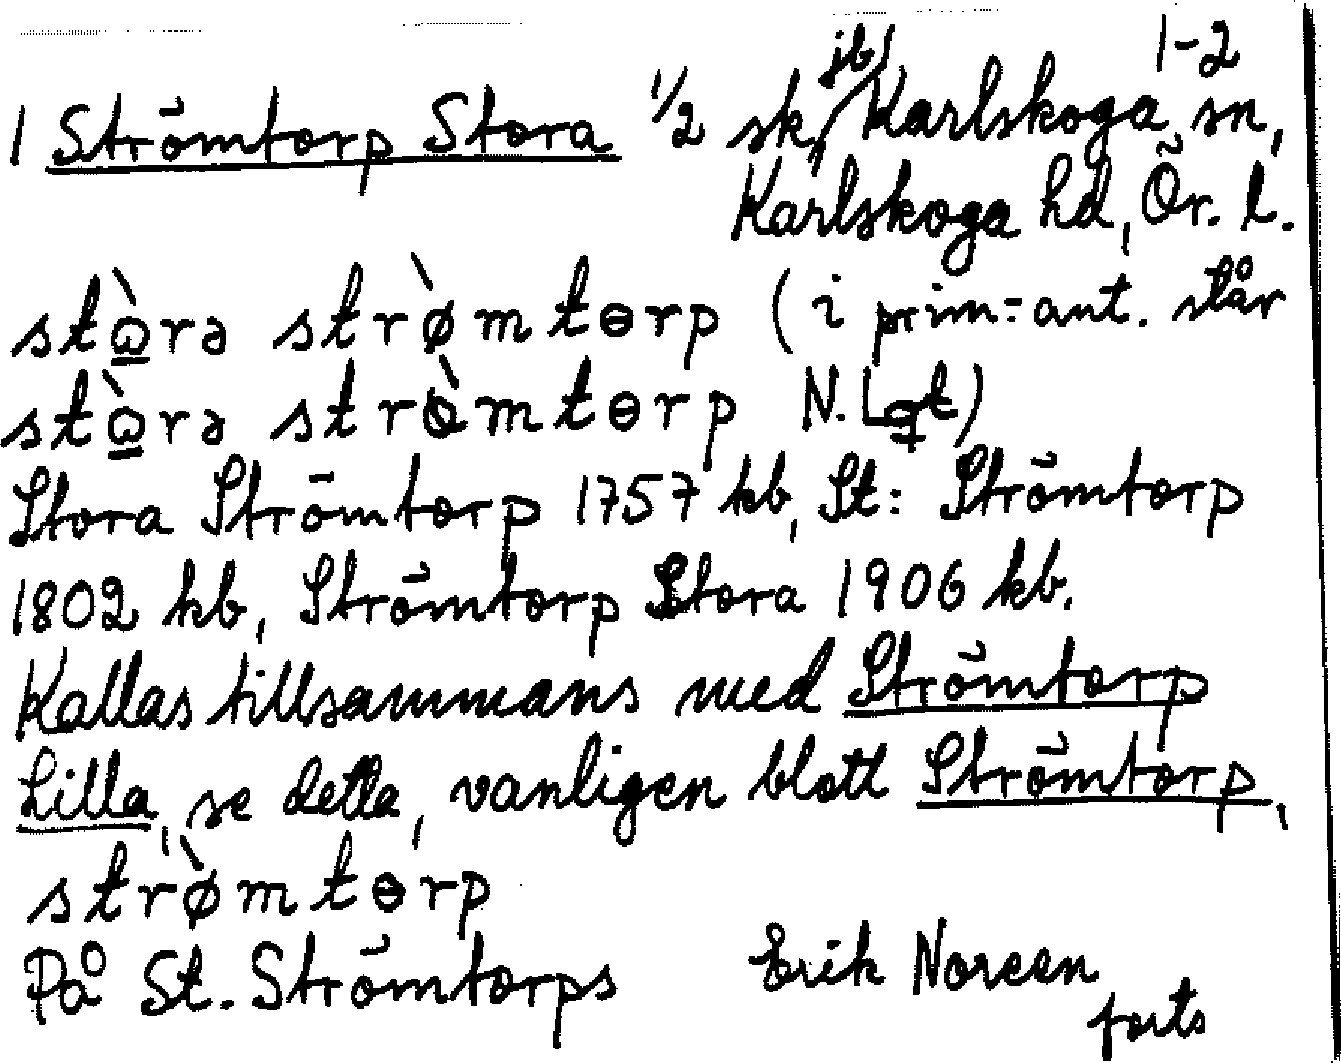 1-2
1 Strömtorp Stora 1/2 sk, jb, Karlskoga sn,
Karlskoga hd, Ör. l.
stɷ̀rə strø̀mtɵrp (i prim:ant. står
stɷ̀rə mtɵrp N. Lgt)
Stora Strömtorp 1757 kb, St: Strömtorp
1802 kb, Strömtorp Stora 1906 kb.
Kallas tillsammans med Strömtorp
Lilla, se detta, vanligen blott Strömtorp,
strø̀mtɵrp
På St. Strömtorps Erik Noreen
forts